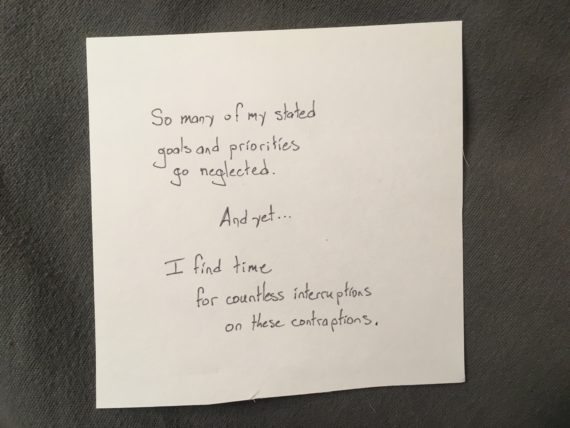 So many of my stated
goals and priorities
go neglected.
And yet...
I find time
for countless interruptions
on these contraptions.